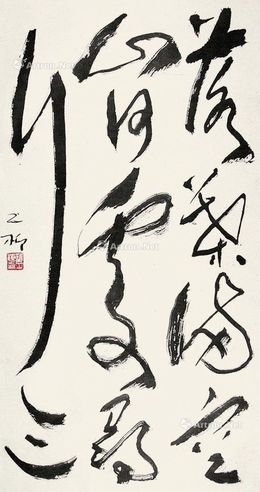 落葉滿空
山何處尋
行迹
Artron.Net